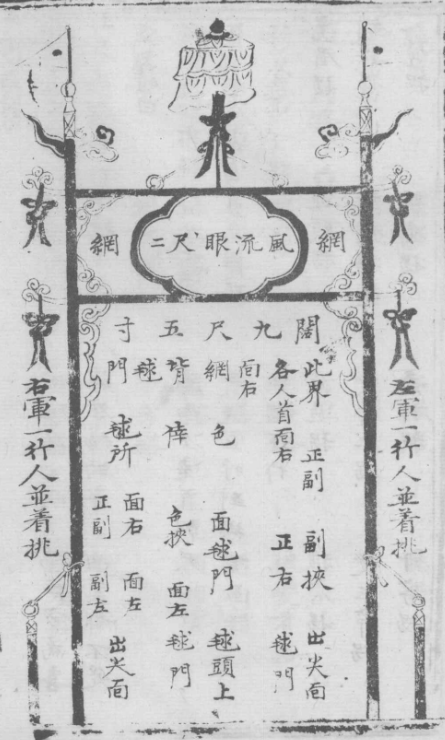 網
風流眼尺二
網
闊九尺五寸
左軍一行人並着挑
此界 正副 副挾 出尖面
各人首面右 正右 毬門
面右
網 色 面毬門 毬頭上
背 倖 色挾 面左毬門
毬
門 毬所 面右 面左 出尖面
正副 副左
右軍一行人並着挑